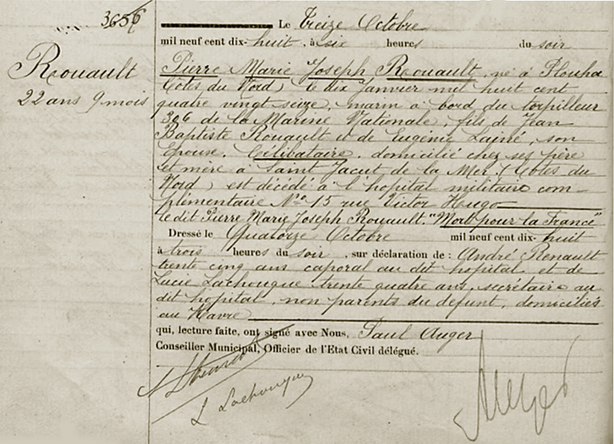 3656
Rouault
22 ans 9 mois
Le treize Octobre
mil neuf cent dix-huit, à six heures du soir
Pierre Marie Joseph Rouault, né à Plouha
Côtes du Nord, le dix janvier mil huit cent
quatre vingt seize, marin à bord du torpilleur
306 de la Marine Nationale, fils de Jean
Baptiste Rouault et de Eugénie Lainé, son
épouse. Célibataire, domicilié chez ses père
et mère à Saint Jacut de la Mer (Côtes du
Nord), est décédé à l'hôpital militaire com-
plémentaire No 15 rue Victor Hugo
le dit Pierre Marie Joseph Rouault. "Mort pour la France"
Dressé le Quatorze Octobre mil neuf cent dix-huit
à trois heures du soir, sur déclaration de: André Renault
trente cinq ans caporal au dit hôpital et de
Lucie Lachouque trente quatre ans, secrétaire au
dit hôpital, non parents du défunt, domiciliés
au Havre
qui, lecture faite, ont signé avec Nous, Paul Auger
Conseiller Municipal, Officier de l'Etat Civil délégué.
L Lachouque